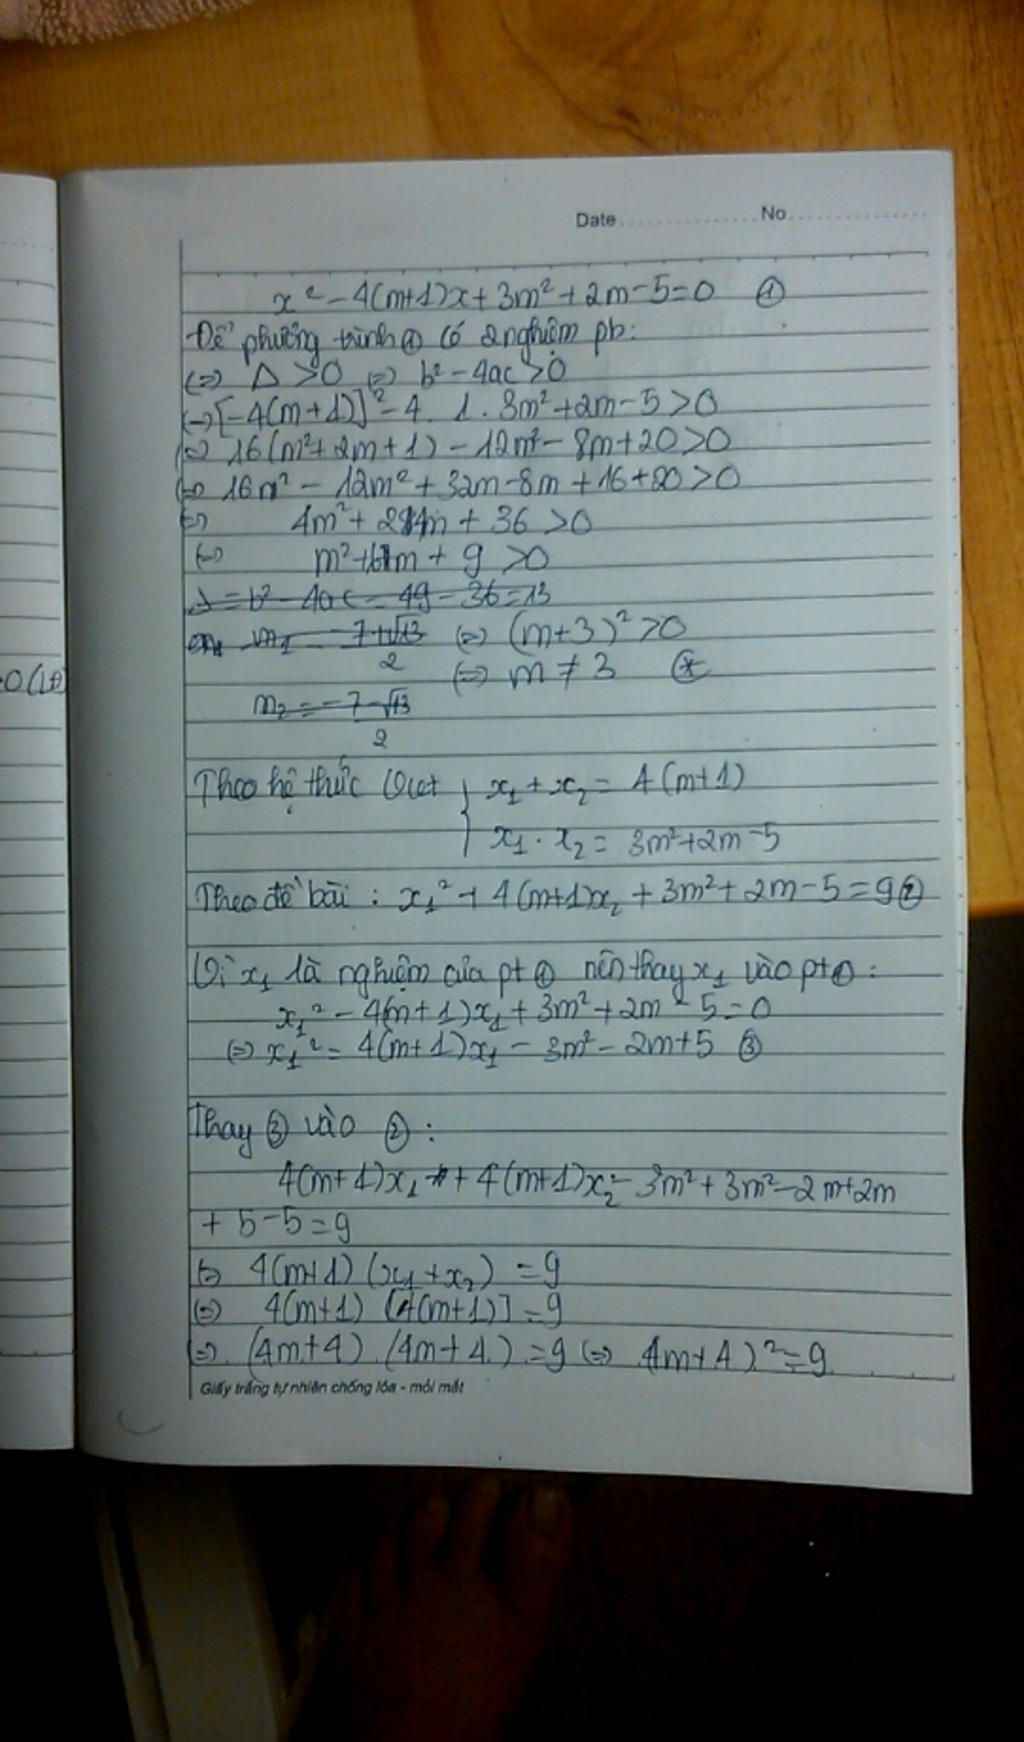 Date............... No...............
x² - 4(m+1)x + 3m² + 2m - 5 = 0 ①
Để phương trình ① có 2 nghiệm pb:
(=) Δ > 0 (=) b² - 4ac > 0
(=) [-4(m+1)]² - 4. 1. 3m² + 2m - 5 > 0
(=) 16(m² + 2m + 1) - 12m² - 8m + 20 > 0
(=) 16m² - 12m² + 32m - 8m + 16 + 20 > 0
(=) 4m² + 24m + 36 > 0
(=) m² + 6m + 9 > 0
Δ = b² - 4ac = 49 - 36 = 13
m₁ = -7+√13 / 2 (=) (m+3)² > 0
0(1đ) (=) m ≠ 3 (*)
m₂ = -7-√13 / 2
Theo hệ thức Viet { x₁ + x₂ = 4(m+1)
x₁ . x₂ = 3m² + 2m - 5
Theo đề bài : x₁² + 4(m+1)x₂ + 3m² + 2m - 5 = 9 ②
Vì x₁ là nghiệm của pt ① nên thay x₁ vào pt ① :
x₁² - 4(m+1)x₁ + 3m² + 2m - 5 = 0
(=) x₁² = 4(m+1)x₁ - 3m² - 2m + 5 ③
Thay ③ vào ② :
4(m+1)x₁ + 4(m+1)x₂ - 3m² + 3m² - 2m + 2m
+ 5 - 5 = 9
(=) 4(m+1) (x₁ + x₂) = 9
(=) 4(m+1) [4(m+1)] = 9
(=) (4m+4) (4m+4) = 9 (=) 4m+4)² = 9
Giấy trắng tự nhiên chống lóa - mỏi mắt